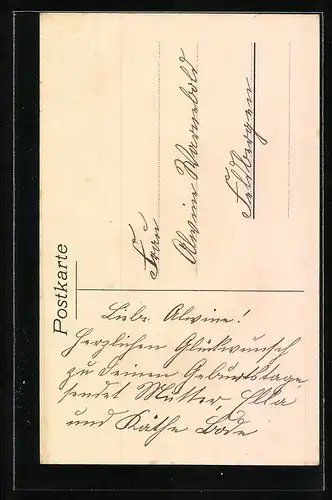 Postkarte
Frau
Alwine Warnebold
Feldbergen
Liebe Alwine!
Herzlichen Glückwunsch
zu deinem Geburtstage
sendet Mutter, Ella
und Käthe Bode